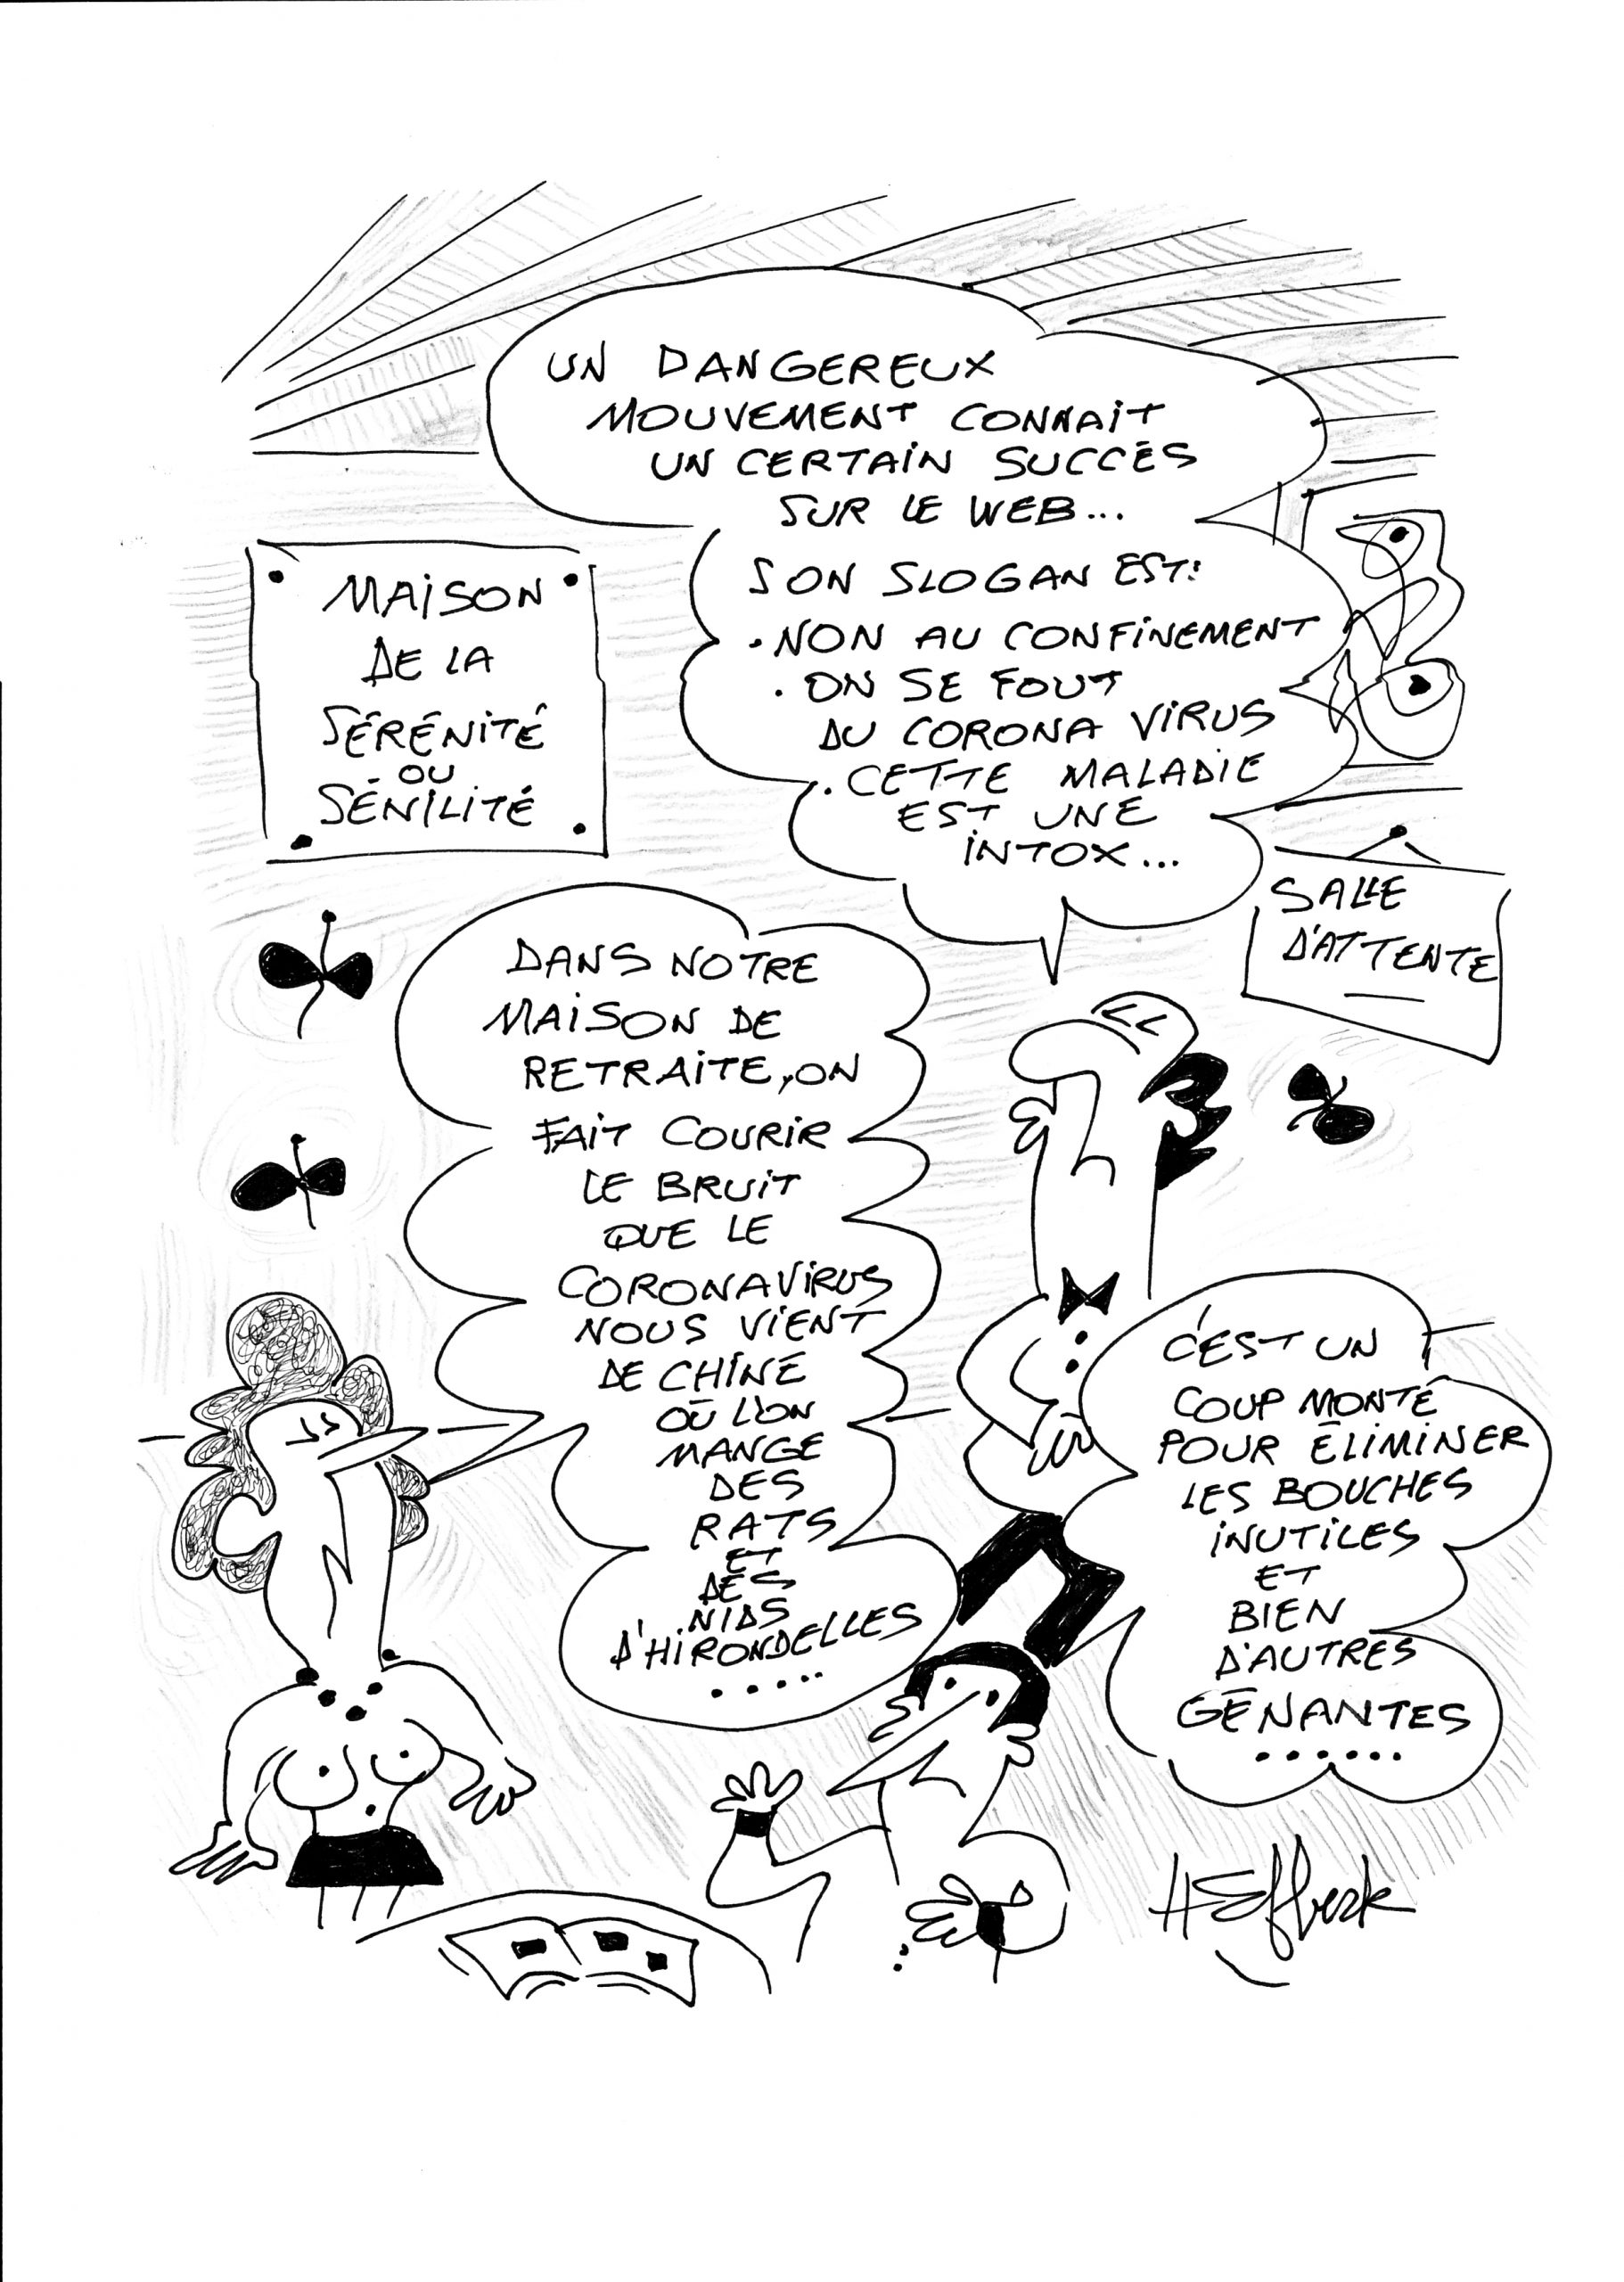 UN DANGEREUX
MOUVEMENT CONNAIT
UN CERTAIN SUCCÈS
SUR LE WEB...
SON SLOGAN EST:
. NON AU CONFINEMENT
. ON SE FOUT
DU CORONA VIRUS
. CETTE MALADIE
EST UNE
INTOX...
MAISON
DE LA
SÉRÉNITÉ
OU
SÉNILITÉ
SALLE
D'ATTENTE
DANS NOTRE
MAISON DE
RETRAITE, ON
FAIT COURIR
LE BRUIT
QUE LE
CORONAVIRUS
NOUS VIENT
DE CHINE
OÙ L'ON
MANGE
DES
RATS
ET
DES
NIDS
D'HIRONDELLES
.....
C'EST UN
COUP MONTÉ
POUR ÉLIMINER
LES BOUCHES
INUTILES
ET
BIEN
D'AUTRES
GÊNANTES
......